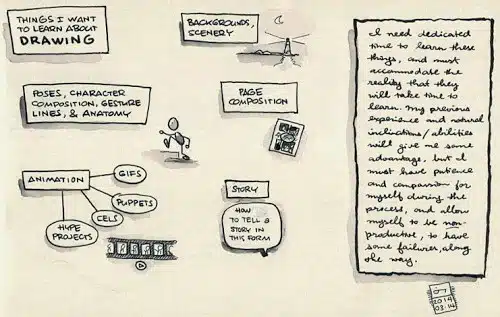 THINGS I WANT
TO LEARN ABOUT
DRAWING
BACKGROUNDS,
SCENERY
POSES, CHARACTER
COMPOSITION, GESTURE
LINES, & ANATOMY
PAGE
COMPOSITION
ANIMATION
GIFS
PUPPETS
CELS
HYPE
PROJECTS
STORY
HOW
TO TELL A
STORY IN
THIS FORM
I need dedicated
time to learn these
things, and must
accommodate the
reality that they
will take time to
learn. My previous
experience and natural
inclinations/abilities
will give me some
advantage, but I
must have patience
and compassion for
myself during the
process, and allow
myself to be non-
productive, to have
some failures, along
the way.
2014
03.14